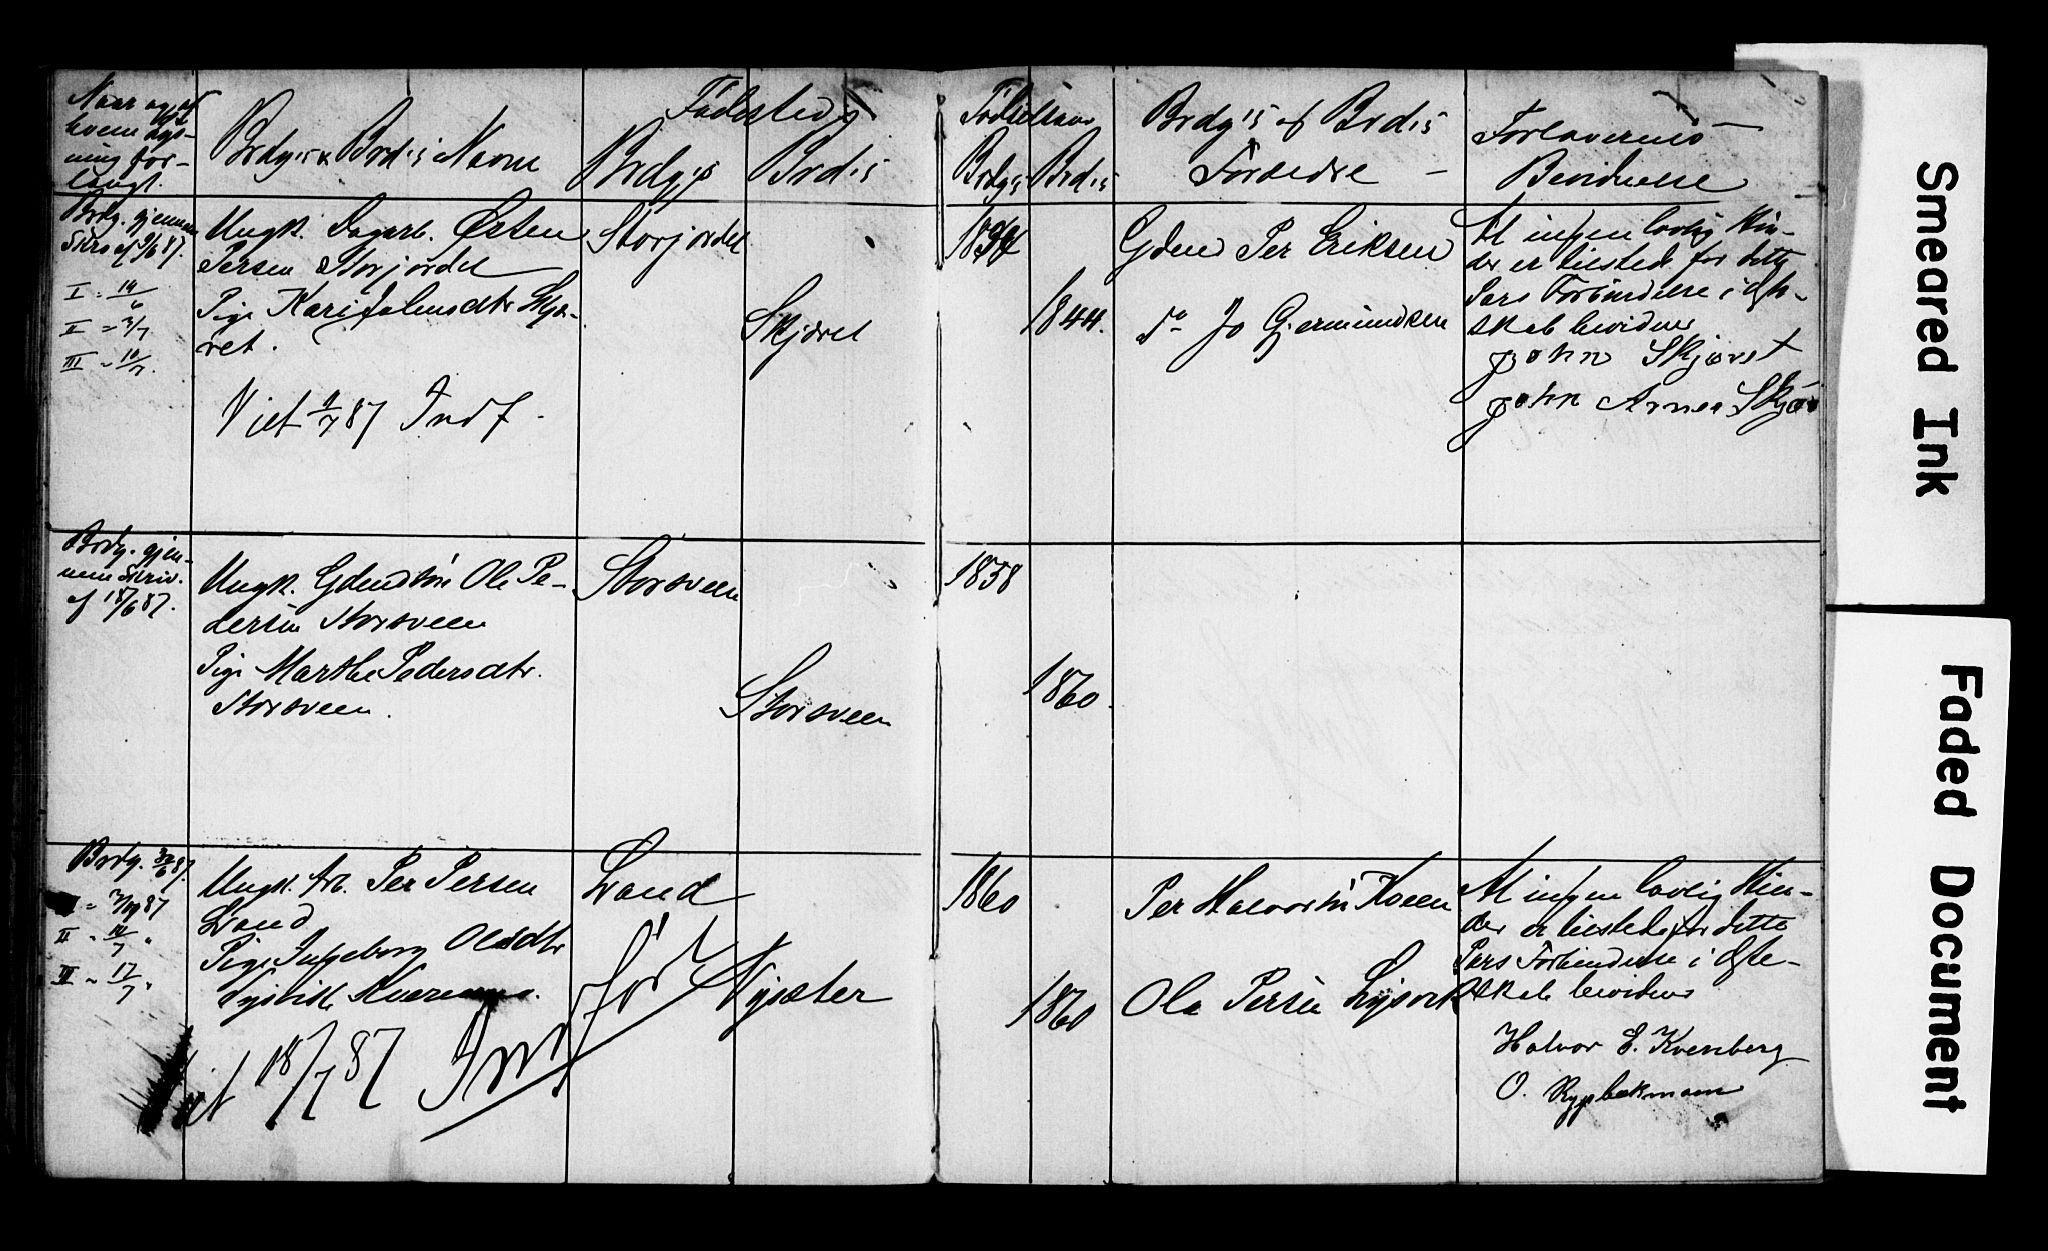 Naar og af
hvem Lys-
ning for-
langt.
Brdg.s & Brd.s Navn
Fødested
Brdg.s
Brd.s
Fødselsaar
Brdg.s
Brd.s
Brdg.s og Brd.s
Forældre
Forlovernes
Bevidnelse
Brdg. gjennem
Skrv af 9/6 87.
I - 19/6
II - 3/7
III - 10/7.
Ungk. Dagarb. Østen
Persen Storjordet
Pige Kari Johnsdtr Skjæ-
ret.
Viet 87 Indf.
Storjordet
Skjæret
1844.
Gdmd Per Eriksen
do Jo Gjermundsen
At ingen lovlig Hin-
der er tilstede for dette
Pars Forbindelse i Ægte-
skab bevidnes
John Skjæret
John Arnes Skjær
Brdg. gjen-
nem Skriv.
af 18/6 87.
Ungk. Gdmdsøn Ole Pe-
dersen Storsveen
Pige Marthe Pedersdtr.
Storsveen.
Storsveen
Storsveen
1858
1860.
Brdg. 30/6 87.
I - 3/7 87
II - 10/7 "
III - 17/7 "
Ungk. Arb. Per Persen
Land
Pige Ingeborg Olsdtr
Viet 18/7 87 Indført
Land
Nysæter
1860
1860
Per Halvorsen Moen
Ola Persen
At ingen lovlig Hin-
der er tilstede for dette
Pars Forbindelse i Ægte-
skab bevidnes
Halvor E. Kvenberg
O. Nygbakmoen
Smeared Ink
Faded Document